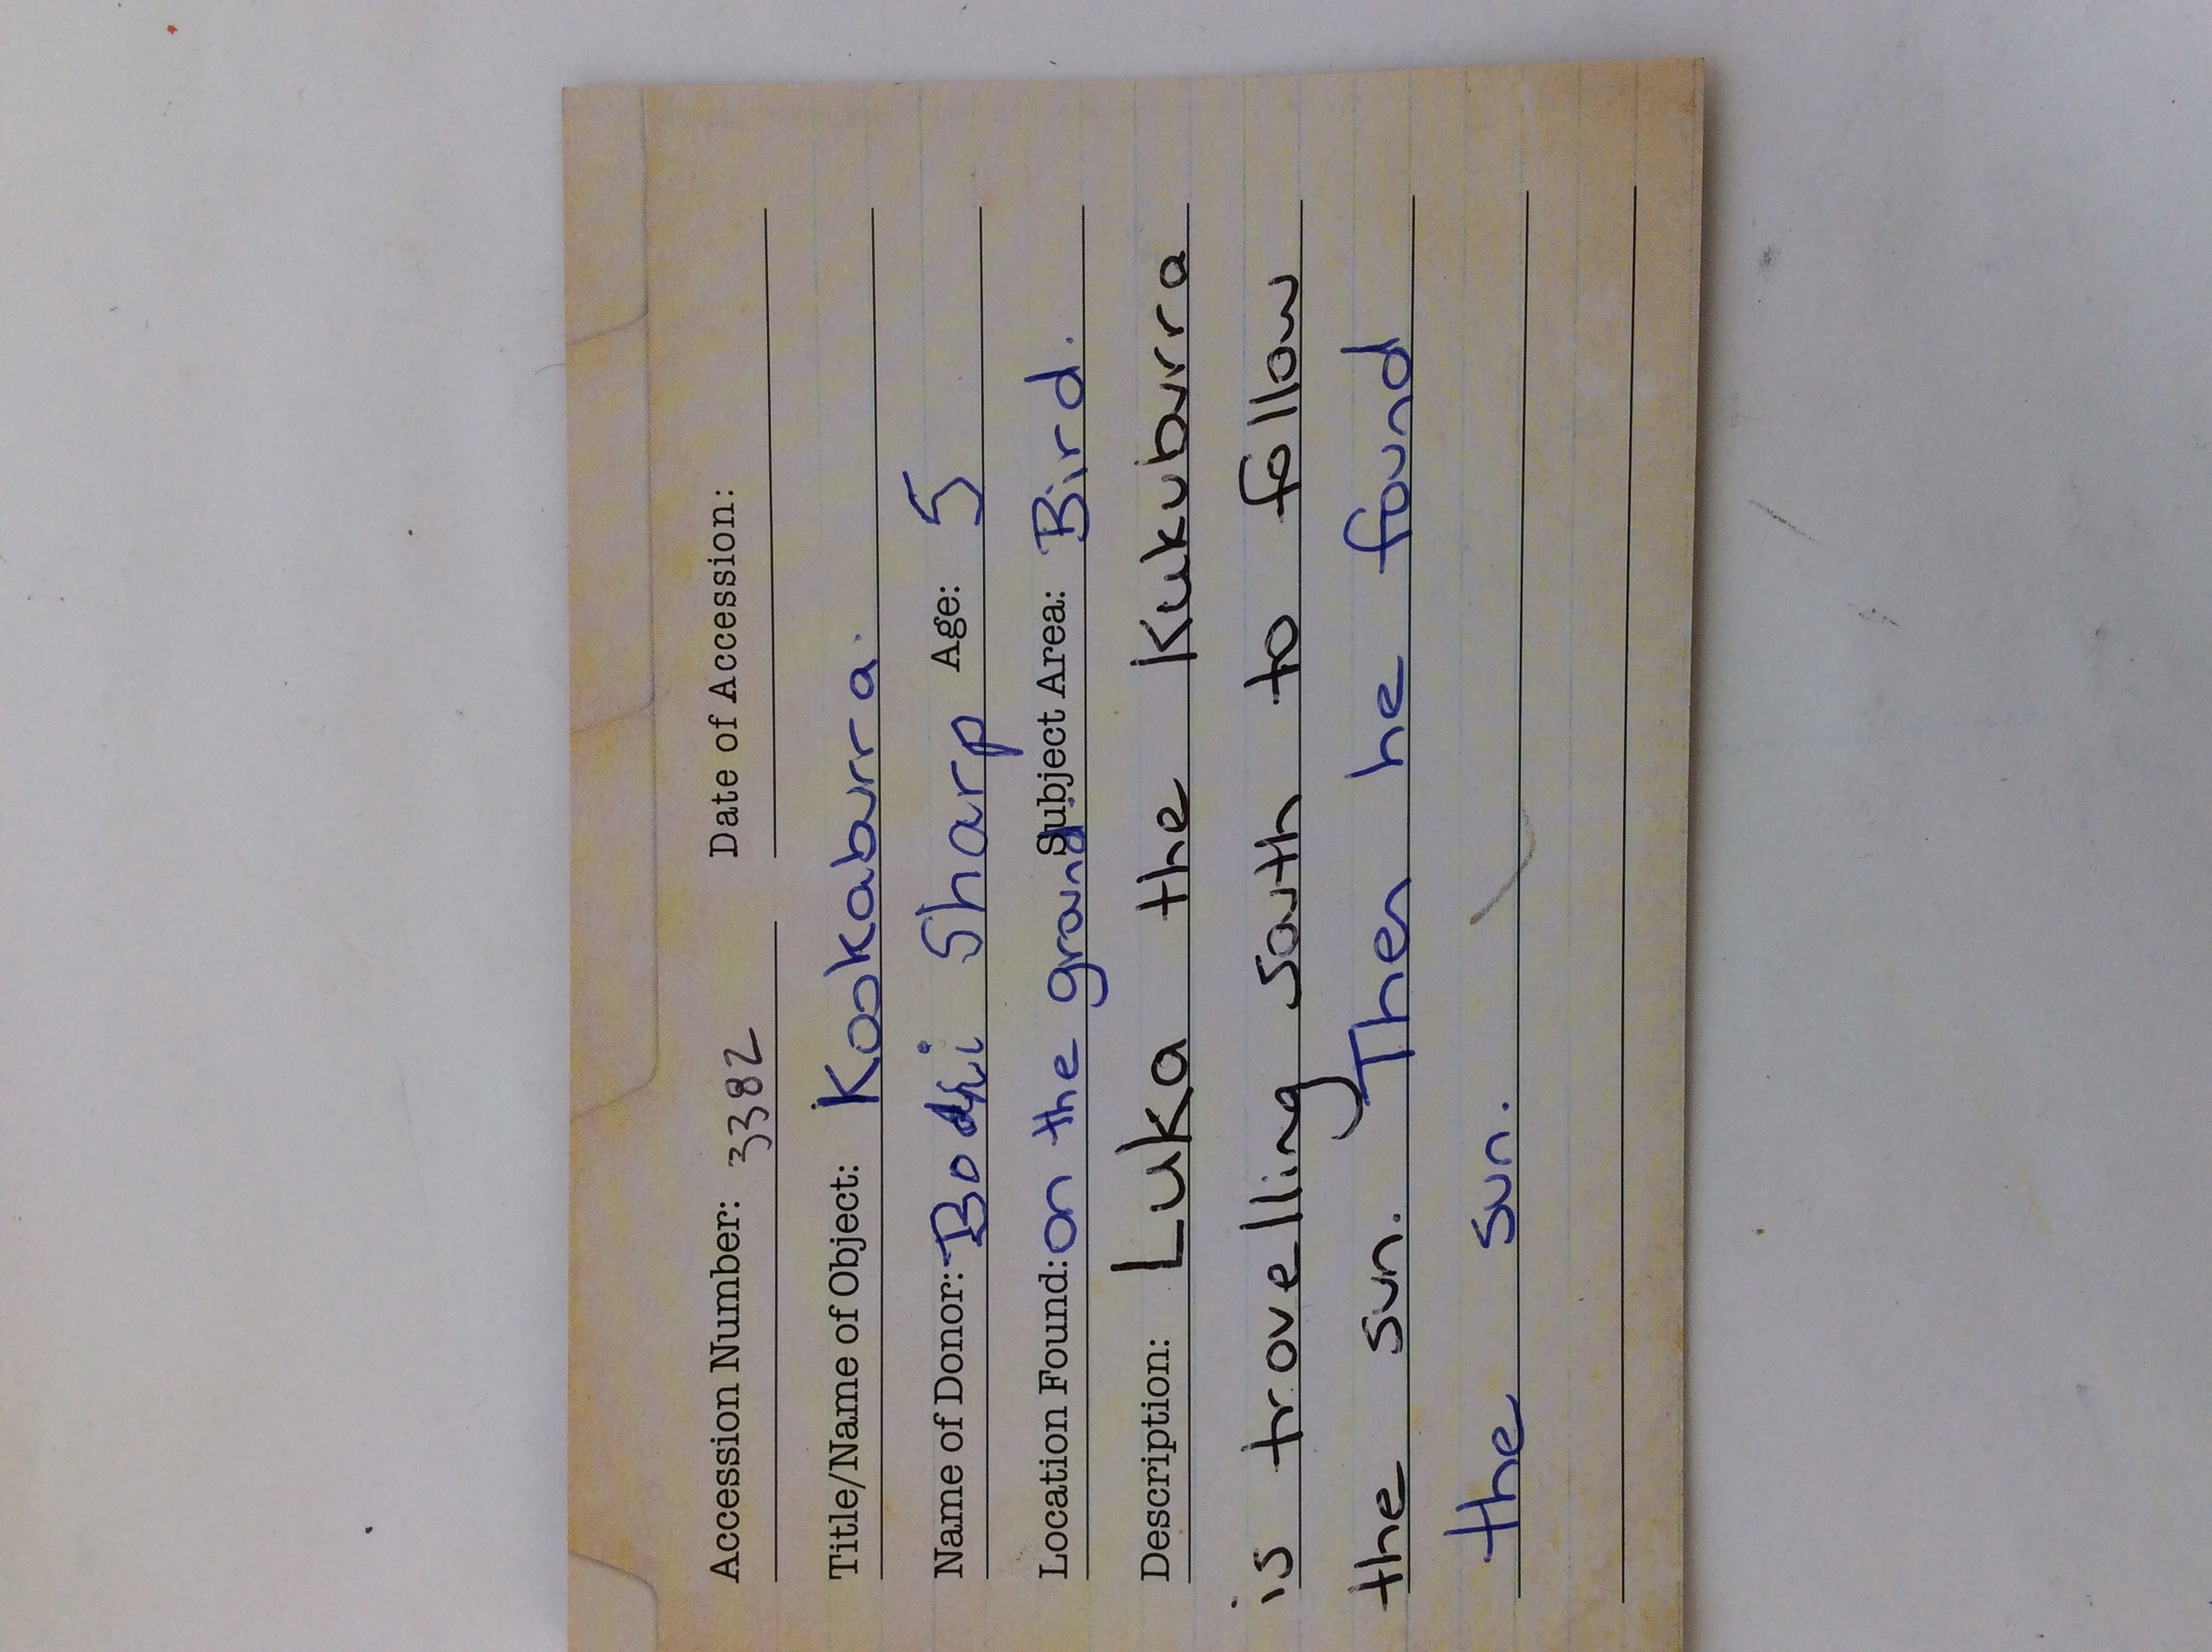 Accession Number: 3382 Date of Accession:
Title/Name of Object: Kookaburra.
Name of Donor: Bodhi Sharp Age: 5
Location Found: on the ground Subject Area: Bird.
Description: Luka the Kukuburra
is travelling south to follow
the sun. Then he found
the sun.